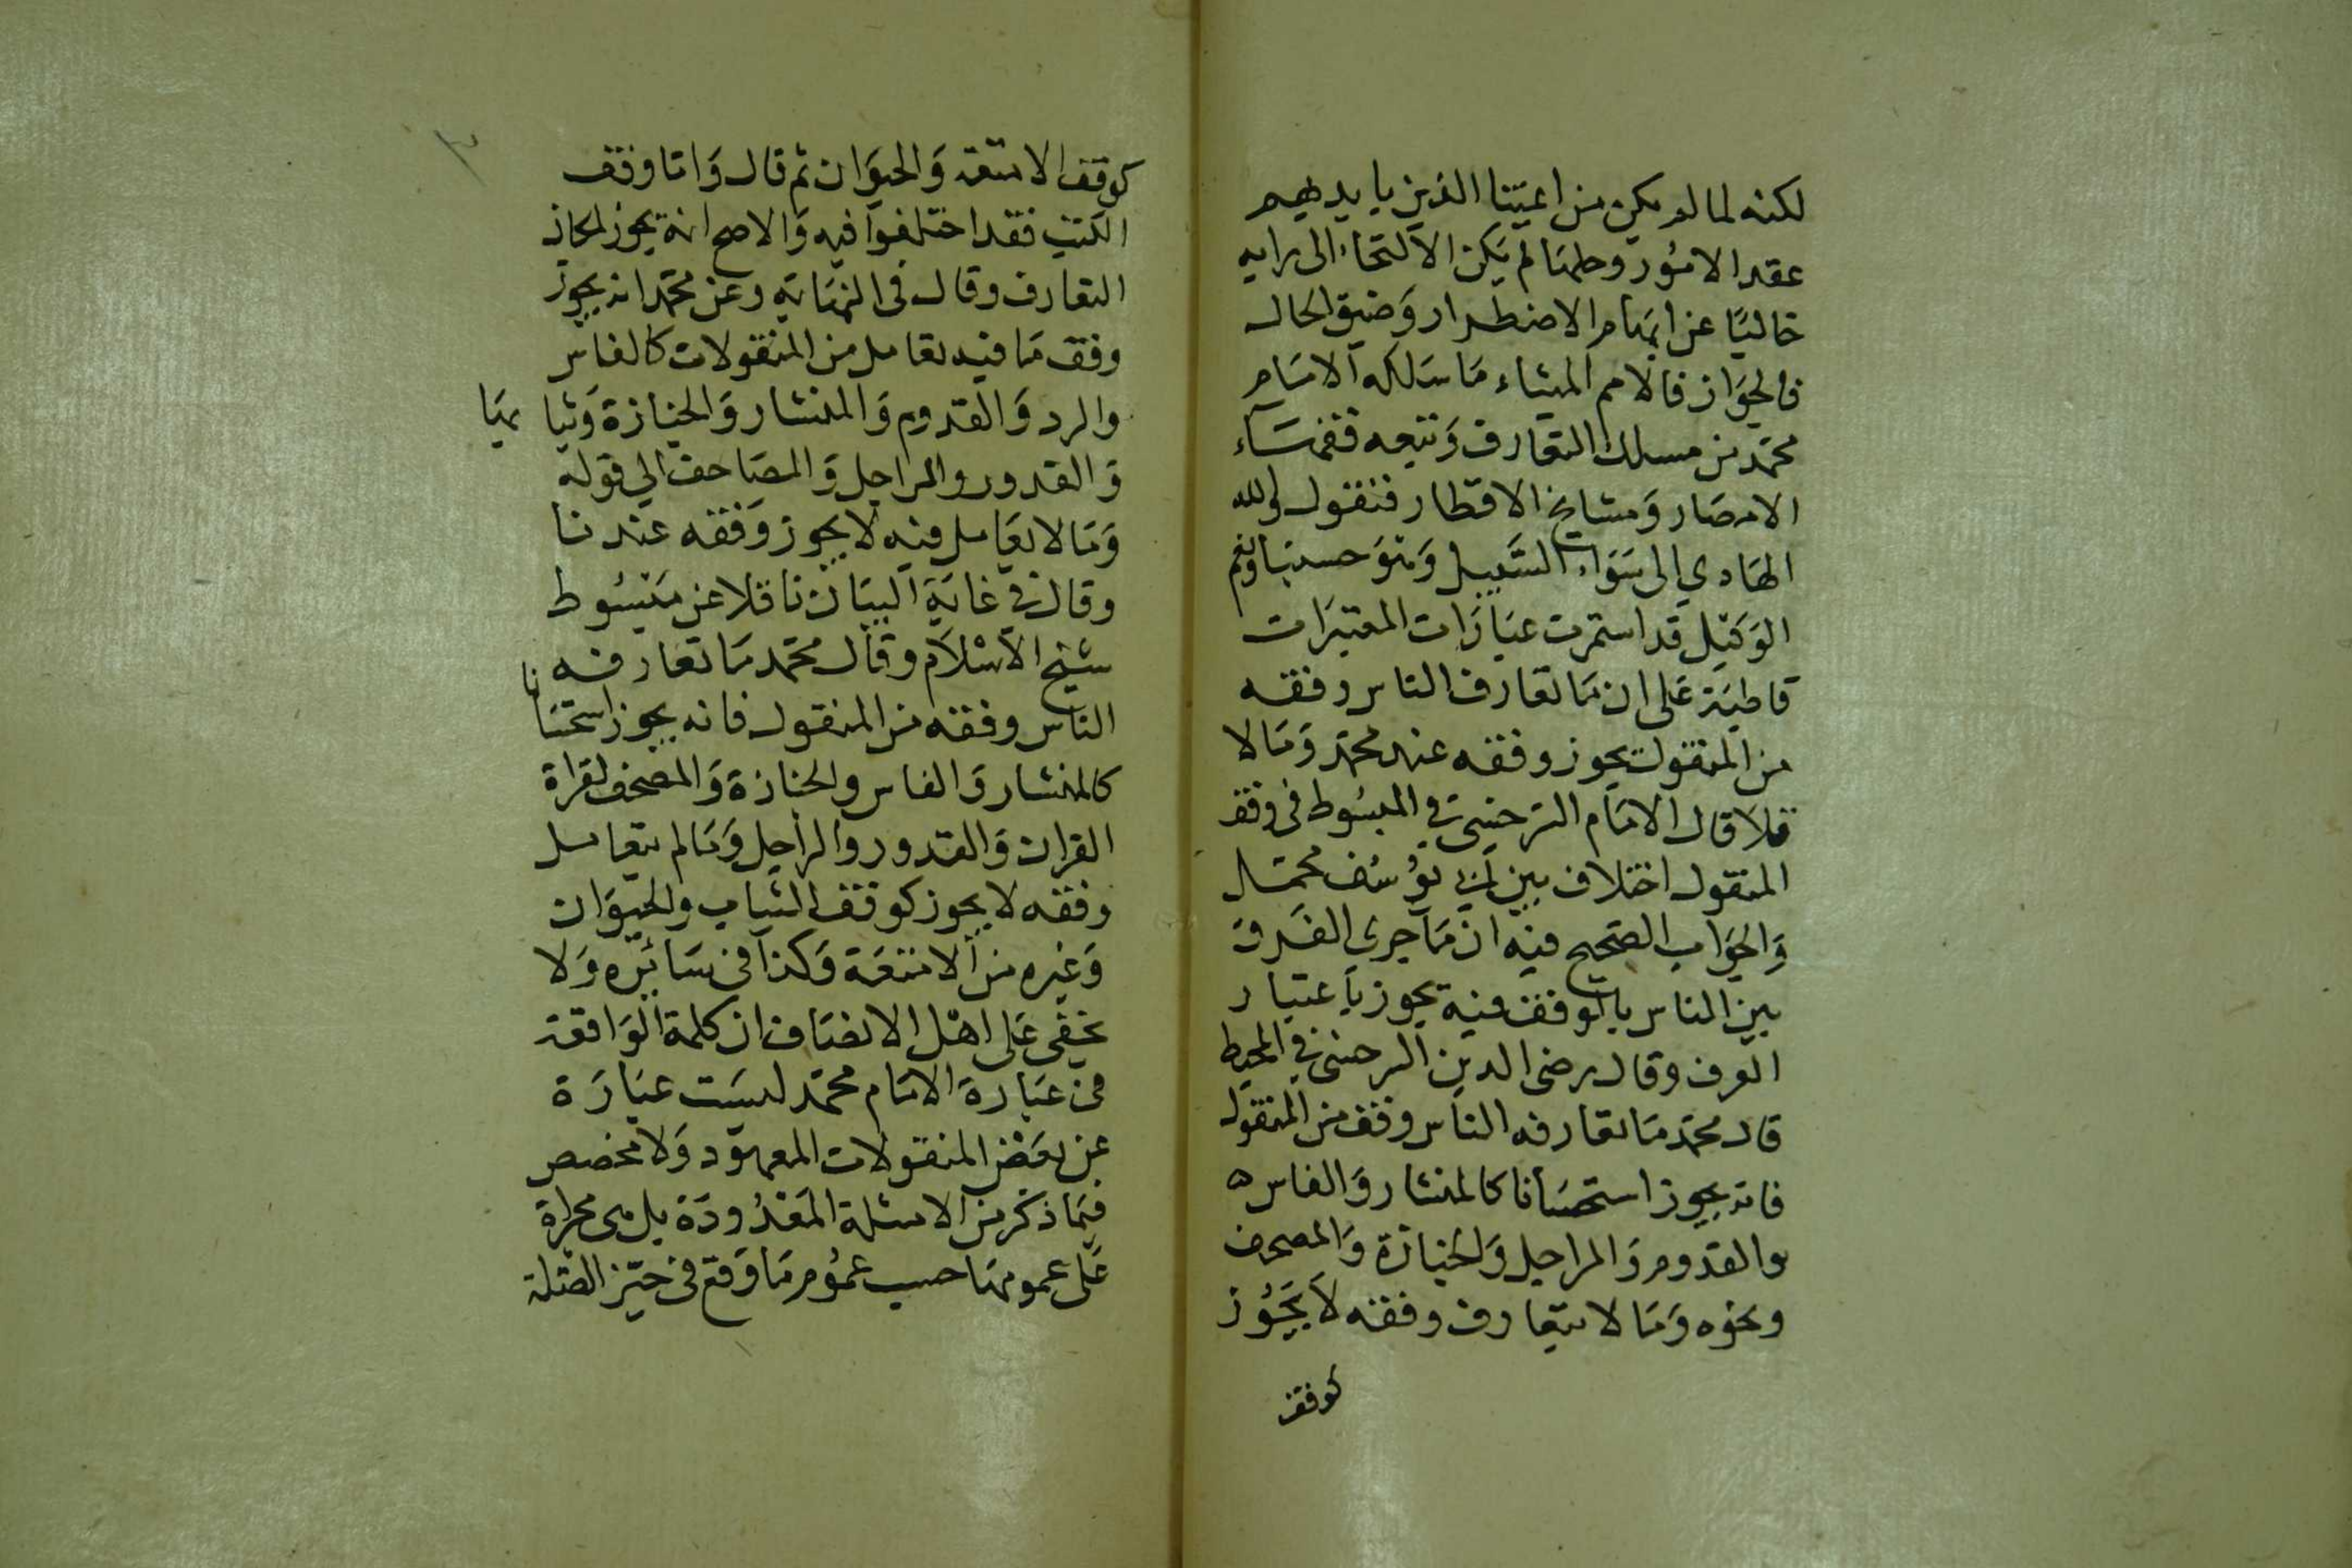 لكنه لما لم يكن من اعيننا الذين بايديهم
عقد الامور وحلها لم يكن الالتجاء الى رايه
خاليًا عن ابهام الاضطرار وضيق الحال
في الجواز فالامم المیثاء ما سلكه الامام
محمد من مسلك التعارف وتبعه فقهاء
الامصار ومشايخ الاقطار فنقول والله
الهادي الى سواء السبيل وهو حسبنا ونعم
الوكيل قد استمرت عبارات المعتبرات
قاطبة على ان ما تعارف الناس وقفه
من المنقولات يجوز وقفه عند محمد وما لا
فلا قال الامام السرخسي في المبسوط في وقف
المنقول اختلاف بين ابي يوسف محمد
والجواب الصحيح فيه ان ما جرى العرف
بين الناس بالوقف فيه يجوز باعتبار
العرف وقال رضى الدين السرخسي في المحيط
قال محمد ما تعارفه الناس وقف من المنقول
فانه يجوز استحسانا كالمنشار والفاس
والقدوم والمراجل والجنازة والمصحف
ونحوه وما لا يتعارف وقفه لا يجوز
كوقف
كوقف الامتعة والحيوان ثم قال واما وقف
الكتب فقد اختلفوا فيه والاصح انه يجوز لمكان
التعارف وقال في النهاية وعن محمد انه يجوز
وقف ما فيه تعامل من المنقولات كالفاس
والمرد والقدوم والمنشار والجنازة وثيابها
والقدور والمراجل والمصاحف الى قوله
وما لا تعامل فيه لا يجوز وقفه عندنا
وقال في غاية البيان ناقلا عن مبسوط
شيخ الاسلام وقال محمد ما تعارفه
الناس وقفه من المنقول فانه يجوز استحسانا
كالمنشار والفاس والجنازة والمصحف لقراة
القران والقدور والمراجل وما لم يتعامل
وقفه لا يجوز كوقف الثياب والحيوان
وغيره من الامتعة وكذا في سائره ولا
يخفى على اهل الانصاف ان كلمة الواقعة
في عبارة الامام محمد ليست عبارة
عن بعض المنقولات المعهود ولا مخصص
فيما ذكر من الامثلة المعدودة بل هي مجراة
على عمومها حسب عموم ما وقع في حيز الصلة